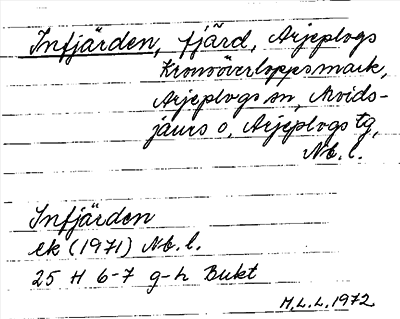 Infjärden, fjärd, Arjeplogs
Kronoöverloppsmark,
Arjeplogs sn, Arvids-
jaurs o, Arjeplogs tg,
Nb. l.
Infjärden
ek (1971) Nb. l.
25 H 6-7 g-h Bukt
H.L.L. 1972